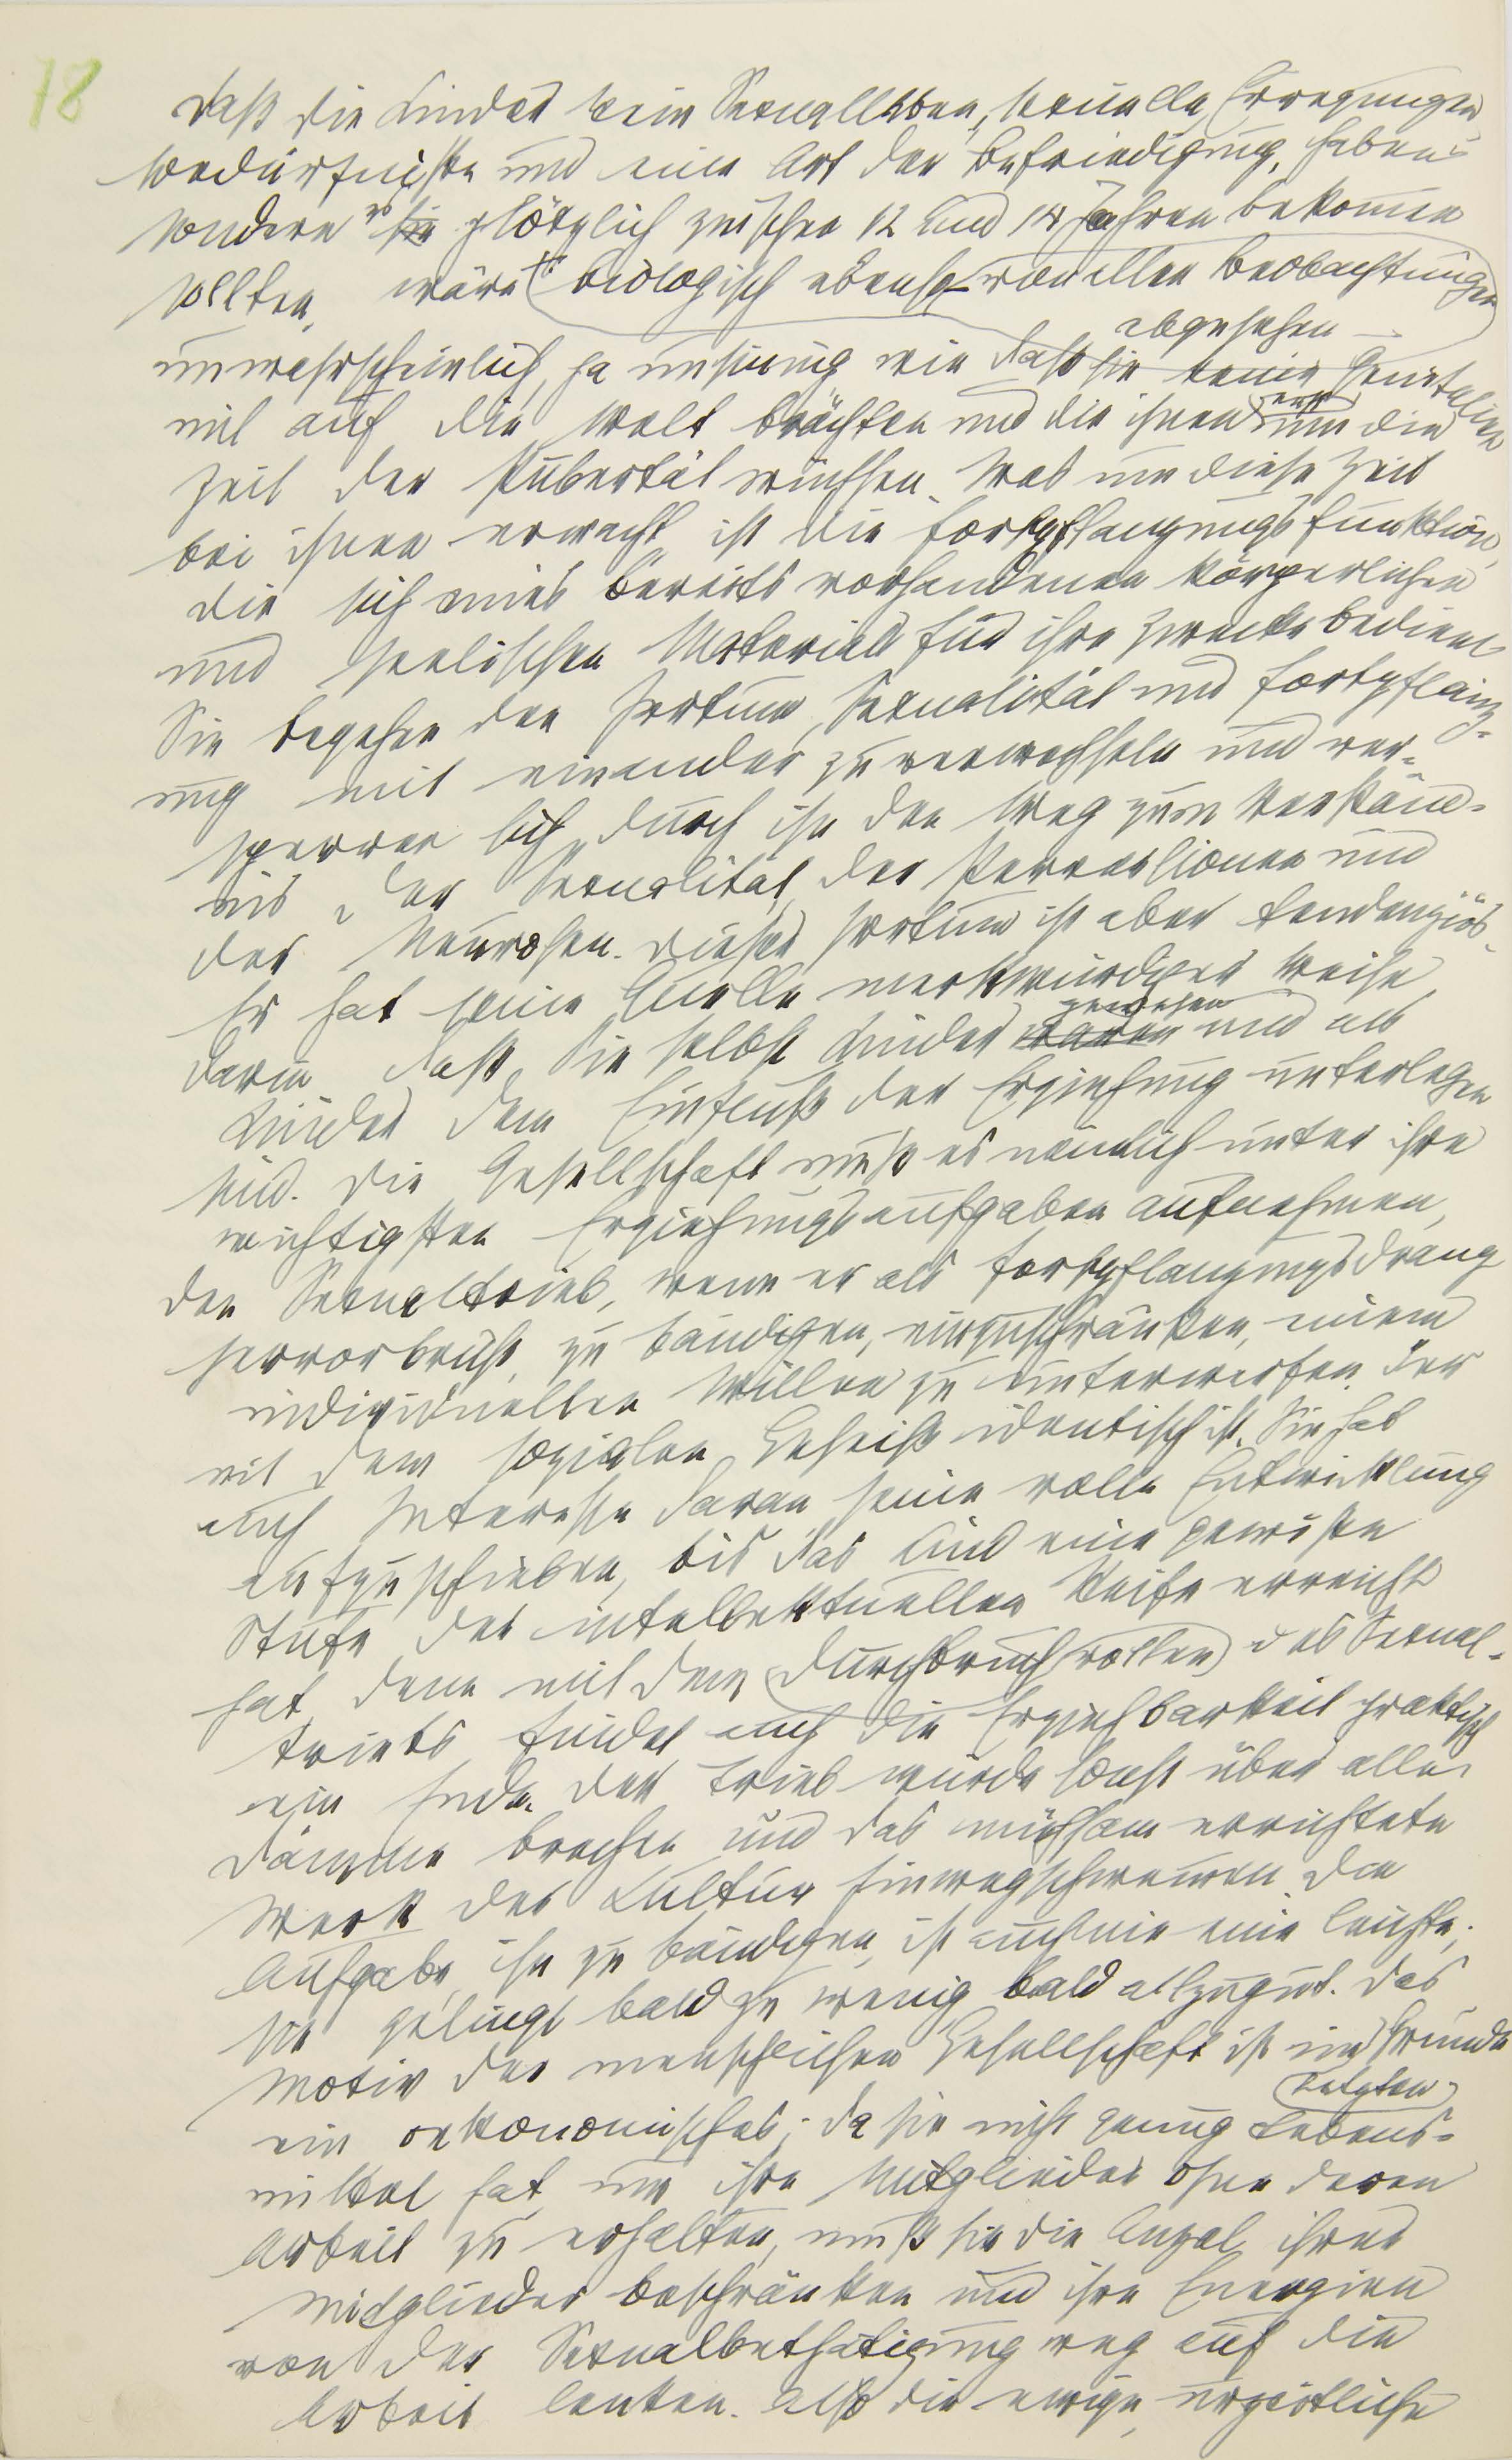 18
Daß die Kinder kein Sexualleben, sexuelle Erregungen,
Bedürfnisse und eine Art der Befriedigung, haben,
sondern es sie plötzlich zwischen 12 und 14 Jahren bekommen
sollten, wäre biologisch ebenso von allen Beobachtungen
abgesehen
unwahrscheinlich, ja unsinnig wie daß sie keine Genitalien
mit auf die Welt brächten und die ihnen erst um die
Zeit der Pubertät wüchsen. Was um diese Zeit
bei ihnen erwacht, ist die Fortpflanzungsfunktion,
die sich eines bereits vorhandenen körperlichen
und seelischen Materials für ihre Zwecke bedient.
Sie begehen den Irrtum, Sexualität und Fortpflanz-
ung mit einander zu verwechseln und ver-
sperren sich durch ihn den Weg zum Verständ-
nis der Sexualität, der Perversionen und
der Neurosen. Dieser Irrtum ist aber tendenziös.
Er hat seine Quelle merkwürdiger Weise
gewesen
darin daß Sie selbst Kinder waren und als
Kinder dem Einfluß der Erziehung unterlegen
sind. Die Gesellschaft muß es nämlich unter ihre
wichtigsten Erziehungsaufgaben aufnehmen,
den Sexualtrieb, wenn er als Fortpflanzungsdrang
hervorbricht, zu bändigen, einzuschränken, einem
individuellen Willen zu unterwerfen, der
mit dem sozialen Geheiß identisch ist. Sie hat
auch Interesse daran seine volle Entwicklung
aufzuschieben, bis das Kind eine gewisse
Stufe der intellektuellen Reife erreicht
hat, denn mit dem Durchbruch vollen des Sexual-
triebs findet auch die Erziehbarkeit praktisch
ein Ende. Der Trieb würde sonst über alle
Dämme brechen und das mühsam errichtete
Werk der Kultur hinwegschwemmen. Die
Aufgabe, ihn zu bändigen, ist auch nie eine leichte,
sie gelingt bald zu wenig bald allzugut. Das
Motiv der menschlichen Gesellschaft ist im Grunde
letzten
ein oekonomisches; da sie nicht genug Lebens-
mittel hat, um ihre Mitglieder ohne deren
Arbeit zu erhalten, muß sie die Anzal ihrer
Mitglieder beschränken und ihre Energien
von der Sexualbethätigung weg auf die
Arbeit lenken. Also die ewige, urzeitliche